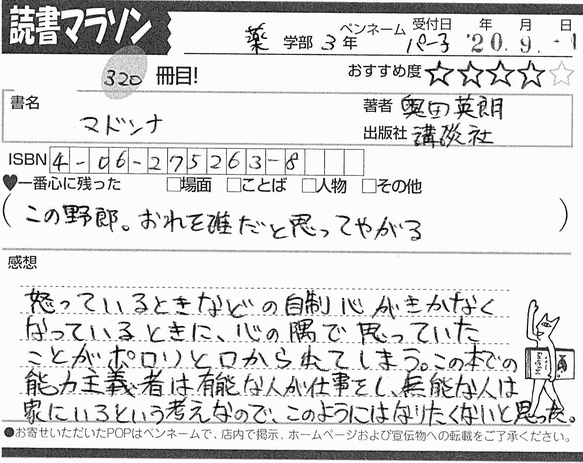 読書マラソン
薬 学部 3年 ペンネーム パー子 受付日 '20年 9月 日
320 冊目! おすすめ度 ☆☆☆☆☆
書名 マドンナ
著者 奥田英朗
出版社 講談社
ISBN 4-06-275263-8
♥一番心に残った □場面 □ことば □人物 □その他
(この野郎。おれを誰だと思ってやがる)
感想
怒っているときなどの自制心がきかなく
なっているときに、心の隅で思っていた
ことがポロリと口から出てしまう。この本での
能力主義者は有能な人が仕事をし、無能な人は
家にいるという考えなので、このようにはなりたくないと思った。
●お寄せいただいたPOPはペンネームで、店内で掲示、ホームページおよび宣伝物への転載をご了承ください。